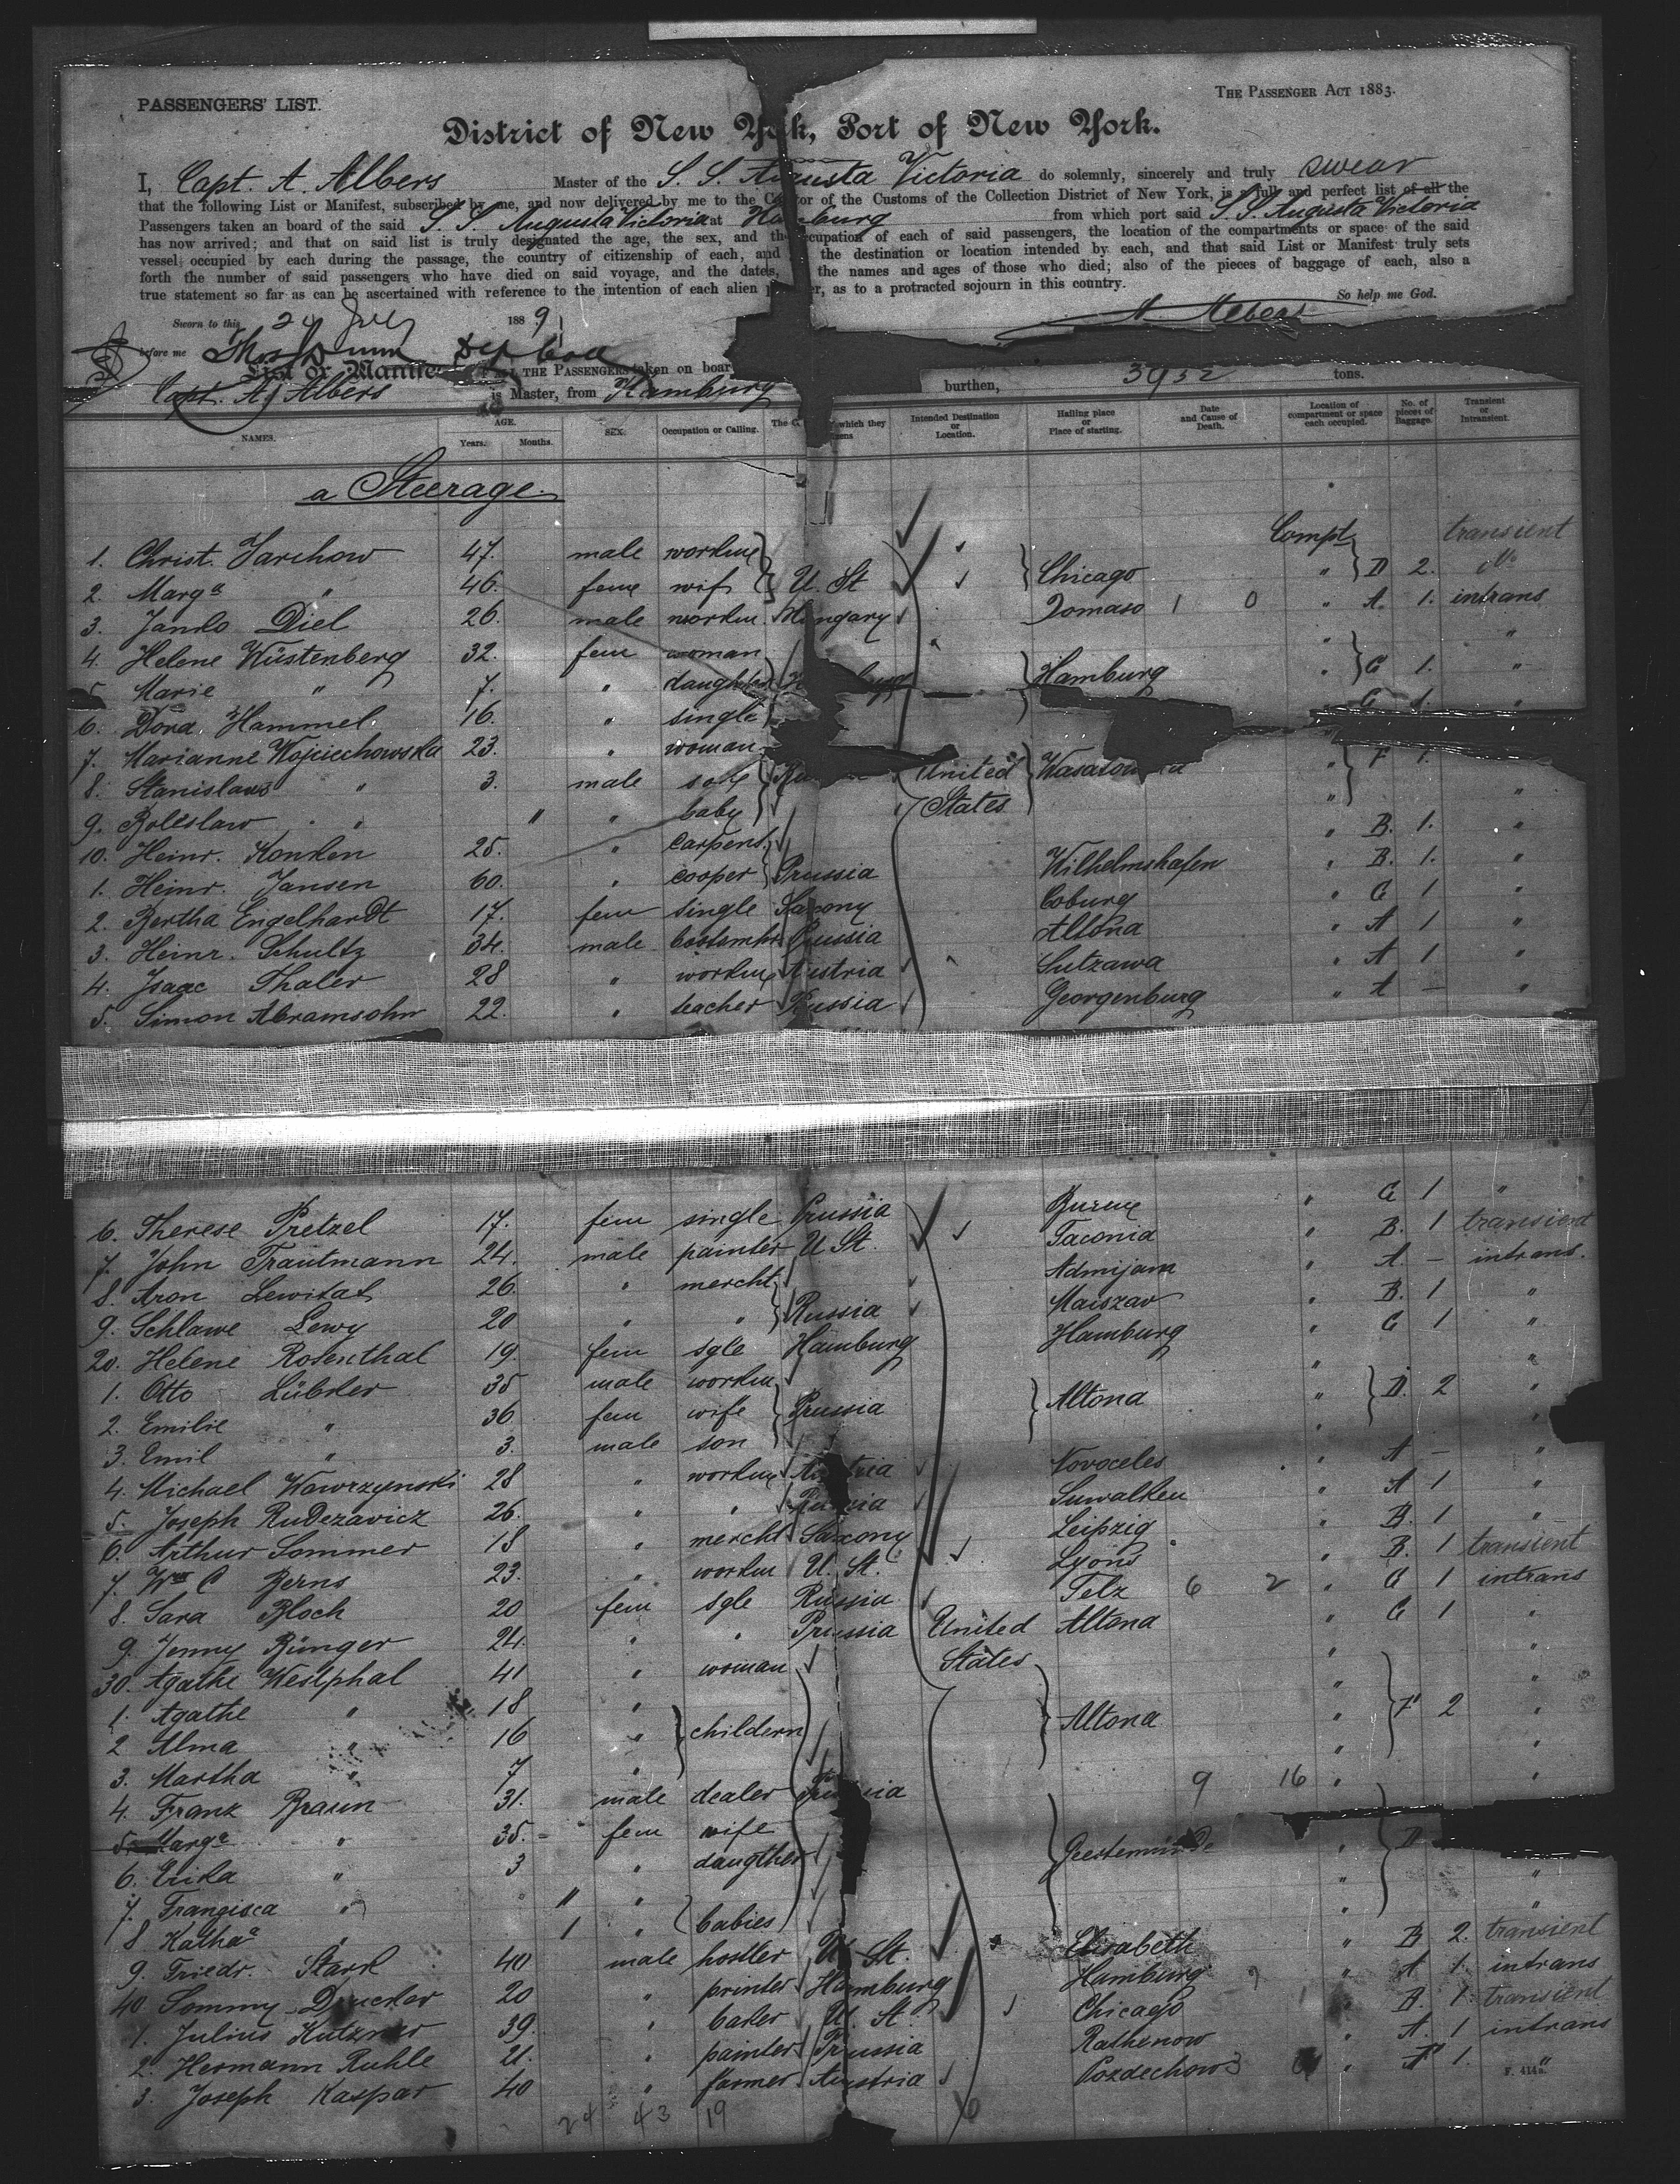 PASSENGERS' LIST.
THE PASSENGER ACT 1883.
District of New York, Port of New York.
I, Capt. A. Albers Master of the S. S. Augusta Victoria do solemnly, sincerely and truly swear
that the following List or Manifest, subscribed by me, and now delivered by me to the C tor of the Customs of the Collection District of New York, is a full and perfect list of all the
Passengers taken an board of the said S. S. Augusta Victoria at Hamburg from which port said S. S. Augusta Victoria
has now arrived; and that on said list is truly designated the age, the sex, and the cupation of each of said passengers, the location of the compartments or space of the said
vessel, occupied by each during the passage, the country of citizenship of each, and the destination or location intended by each, and that said List or Manifest truly sets
forth the number of said passengers who have died on said voyage, and the dates, the names and ages of those who died; also of the pieces of baggage of each, also a
true statement so far as can be ascertained with reference to the intention of each alien p er, as to a protracted sojourn in this country.
So help me God.
Sworn to this 24 July 1889 A Albers
before me Thos Dunn Dep Coll
List or Manife ALL THE PASSENGERS taken on boar
Capt. A. Albers is Master, from Hamburg burthen, 3952 tons.
NAMES. AGE. Years. Months. SEX. Occupation or Calling. The C which they zens Intended Destination or Location. Hailing place or Place of starting. Date and Cause of Death. Location of compartment or space each occupied. No. of pieces of Baggage. Transient or Intransient.
a Steerage
Compt transient
1. Christ. Jarchow 47. male workm
2. Marga " 46. feme wife U. St Chicago " D 2. "
3. Janko Diel 26. male workm Hungary Tomaso 1 0 " A. 1. intrans
4. Helene Wüstenberg 32. fem woman "
5. Marie " 7. " daughter Hamburg " C 1. "
6. Dora Hammel 16. " single C 1. "
7. Marianne Wojciechowska 23. " woman
8. Stanislaus " 3. male son United " F 1.
9. Boleslaw " " " baby States " "
10. Heinr. Konken 25. " carpent. " B. 1. "
1. Heinr. Jansen 60. " cooper Prussia Wilhelmshafen " B. 1. "
2. Bertha Engelhardt 17. fem single Saxony Coburg " C 1 "
3. Heinr. Schultz 34. male Prussia Altona " A 1 "
4. Isaac Thaler 28 " workm Austria Sutzawa " A 1 "
5. Simon Abramsohn 22. " teacher Russia Georgenburg " A — "
6. Therese Pretzel 17. fem single Prussia " C 1 "
7. John Trautmann 24. male painter U St. Taconia " B. 1 transient
8. Aron Lewitat 26. " mercht Admijam " A. — intrans.
9. Schlawe Lewy 20 " " Russia Maiszav " B. 1 "
20. Helene Rosenthal 19. fem sgle Hamburg Hamburg " C 1 "
1. Otto Lübker 35 male workm "
2. Emilie " 36 fem wife Prussia Altona " D. 2 "
3. Emil " 3. male son " "
4. Michael Wawrzynski 28 " workm Austria Novoceles " A — "
5. Joseph Rudezavicz 26. " " Russia Suwalken " A 1 "
6. Arthur Sommer 18 " mercht Saxony Leipzig " B. 1 "
7. Wm C Berns 23. " workm U. St. Lyons " B. 1 transient
8. Sara Bloch 20 fem sgle Russia Telz 6 2 " C 1 intrans
9. Jenny Bünger 24. " " Prussia United Altona " C 1 "
30. Agathe Westphal 41 " woman States " "
1. Agathe " 18 " " "
2. Alma " 16 " childern Altona " F 2 "
3. Martha " 7 " " "
4. Franz Braun 31. male dealer Prussia 9 16 " "
5. Marga " 35. fem wife
6. Erika " 3 " daugther Geestemünde " D "
7. Franzisca " " " " "
8. Katha " 1 " babies "
9. Friedr. Stark 40 male hostler U. St. Elisabeth " B 2. transient
40 Sommy Drucker 20 " printer Hamburg Hamburg " A 1. intrans
1. Julius Kutzner 39. " baker U. St. Chicago " B. 1 transient
2. Hermann Ruhle 21. " painter Prussia Rathenow " A. 1 intrans
3. Joseph Kaspar 40 " farmer Austria Pozdechow 3 " F 1. "
F. 414a.
24 43 19